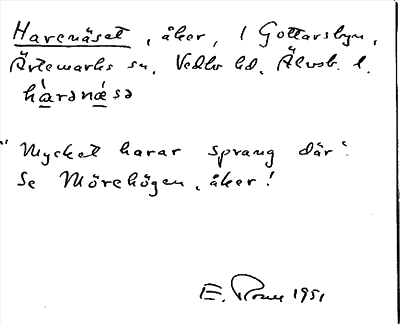 Harenäset, åker, i Gottarsbyn,
Ärtemarks sn, Vedbo hd, Älvsb. l.
hárənæ̀sə
"Mycket harar sprang där".
Se Mörehögen, åker!
E. 1951